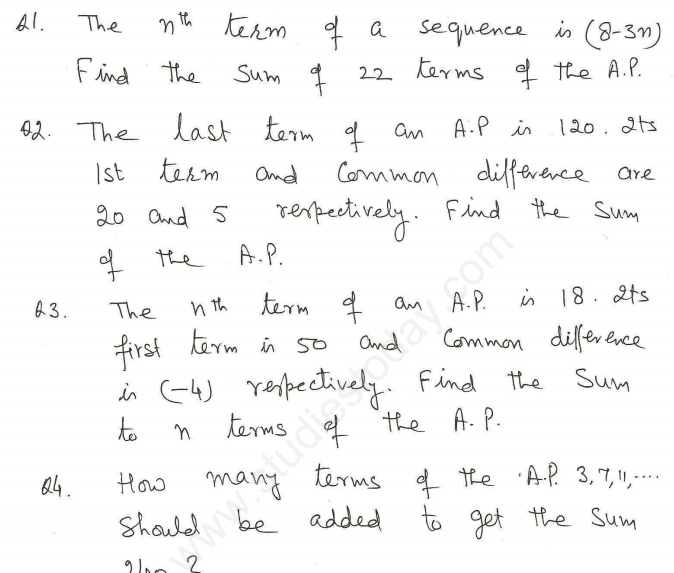 Q1. The nth term of a sequence is (8-3n)
Find the Sum of 22 terms of the A.P.
Q2. The last term of an A.P is 120. Its
1st term and Common difference are
20 and 5 respectively. Find the Sum
of the A.P.
Q3. The nth term of an A.P. is 18. Its
first term is 50 and Common difference
is (-4) respectively. Find the Sum
to n terms of the A.P.
Q4. How many terms of the A.P. 3,7,11,....
Should be added to get the Sum
?
www.studiestoday.com